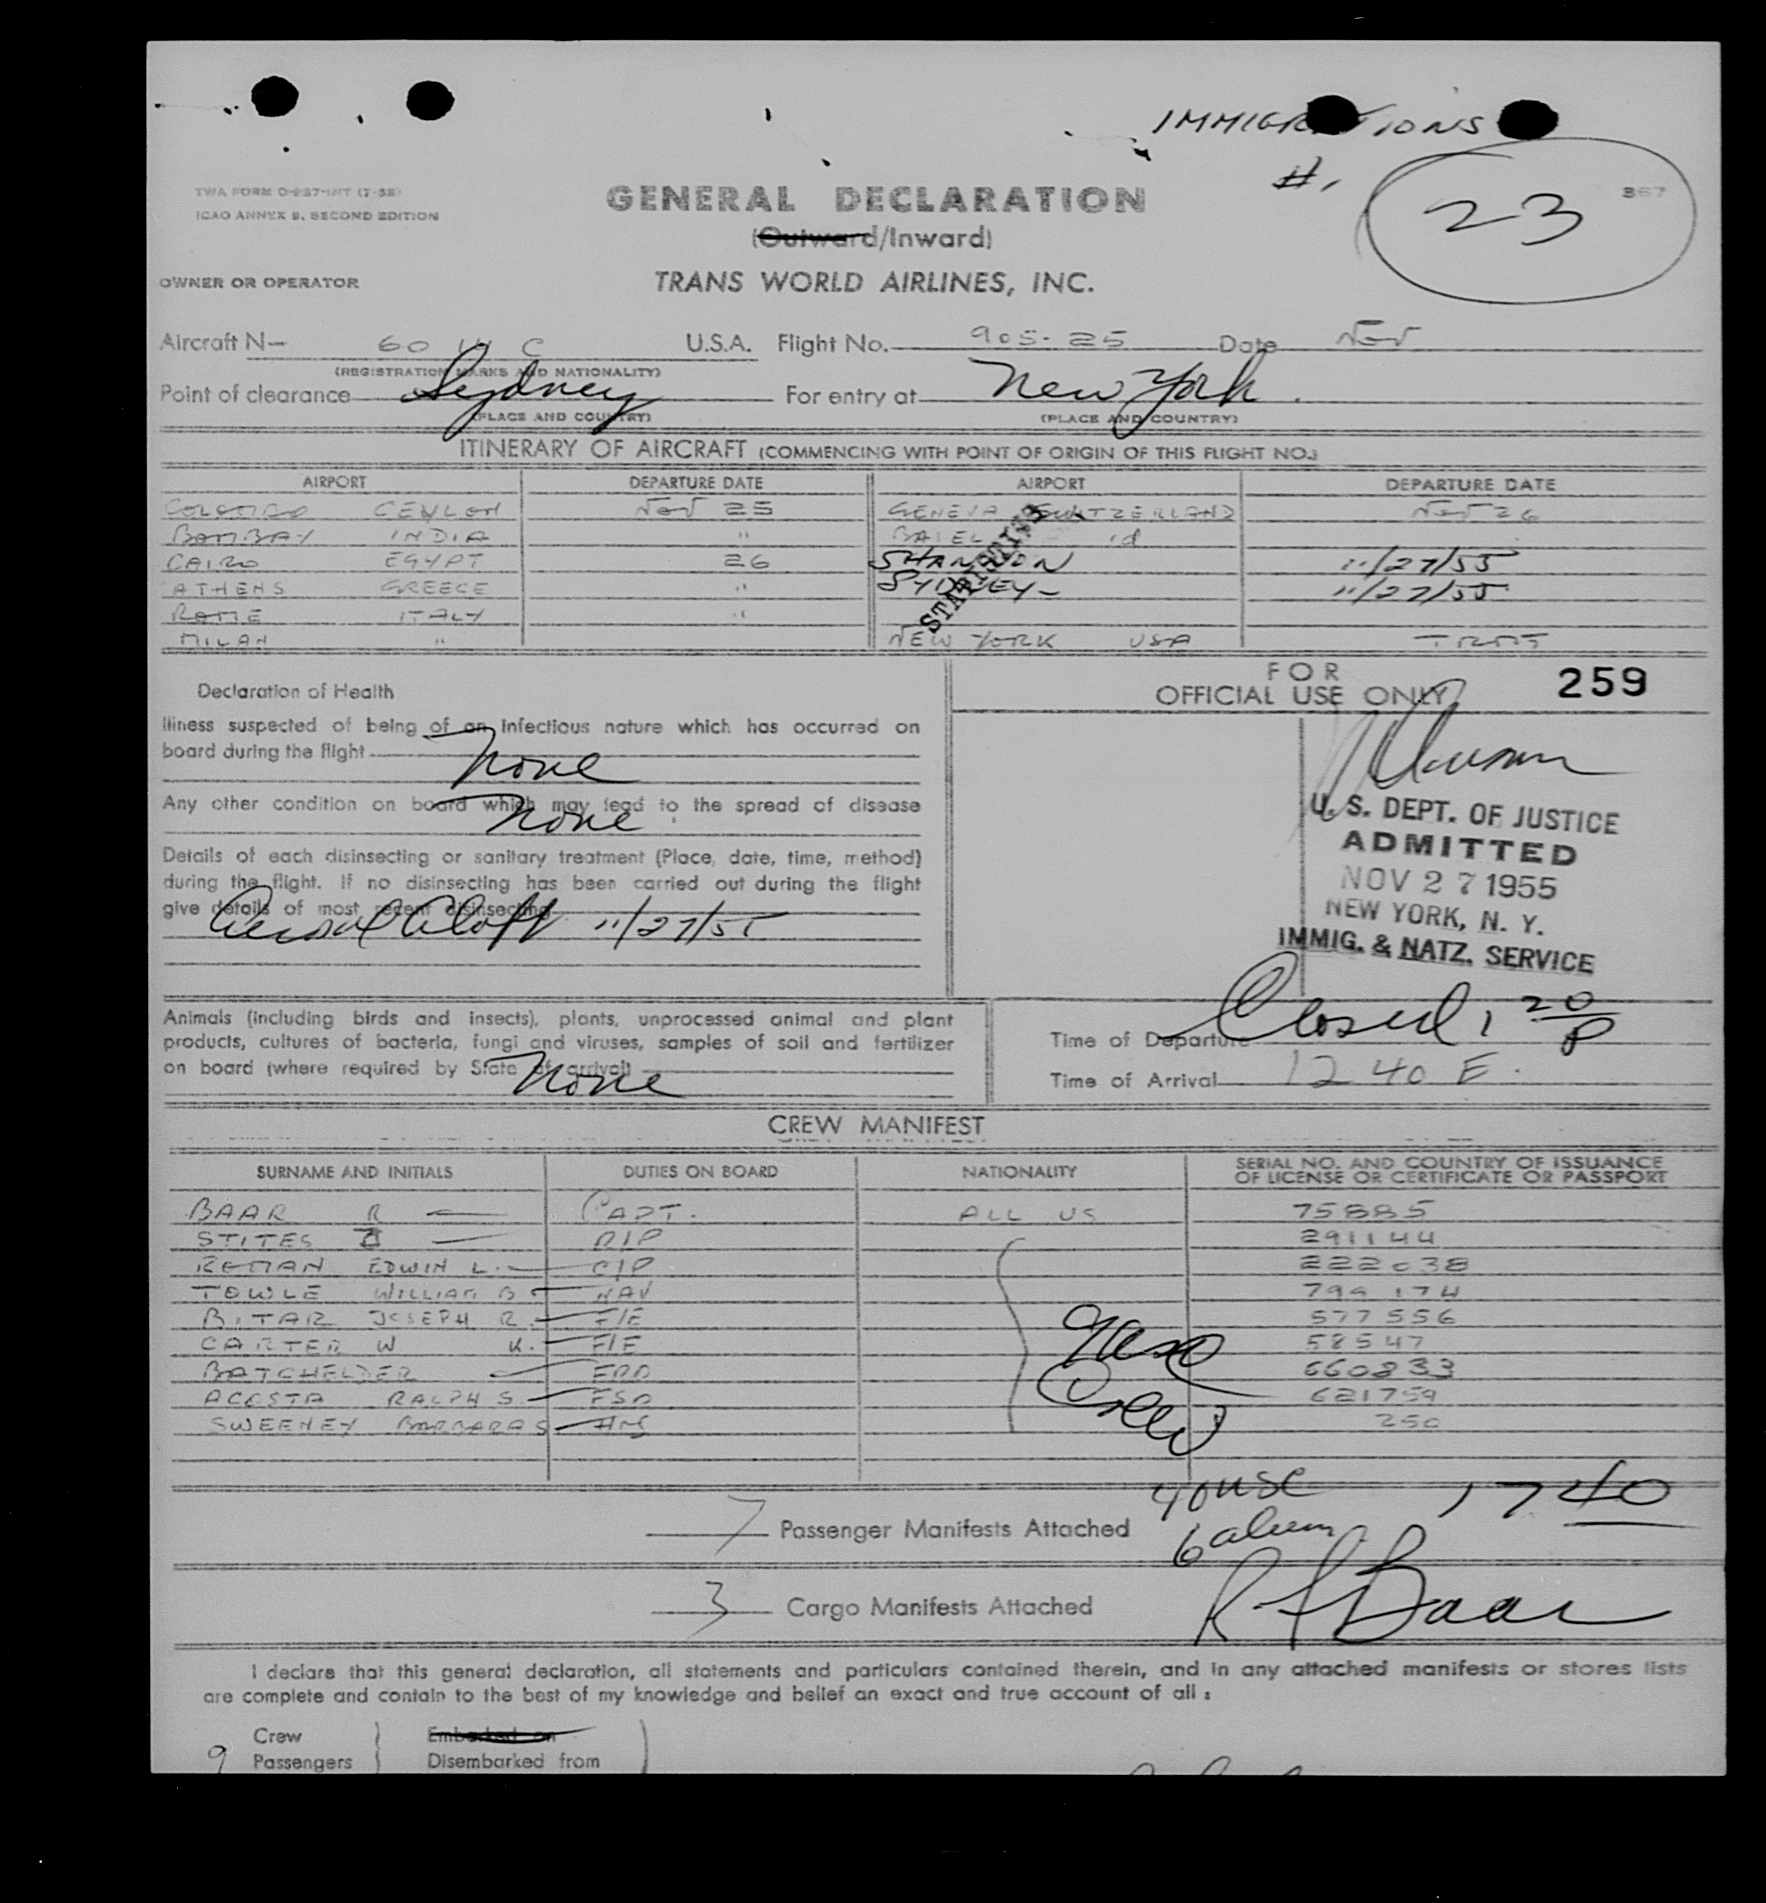 IMMIGRATIONS
#1
23
367
TWA FORM O-257-INT (7-55)
ICAO ANNEX 9, SECOND EDITION
GENERAL DECLARATION
(Outward/Inward)
OWNER OR OPERATOR TRANS WORLD AIRLINES, INC.
Aircraft N— 60 W C U.S.A. Flight No. 905-25 Date Nov
(REGISTRATION MARKS AND NATIONALITY)
Point of clearance Sydney For entry at New York
(PLACE AND COUNTRY) (PLACE AND COUNTRY)
ITINERARY OF AIRCRAFT (COMMENCING WITH POINT OF ORIGIN OF THIS FLIGHT NO.)
AIRPORT DEPARTURE DATE AIRPORT DEPARTURE DATE
COLOMBO CEYLON NOV 25 GENEVA SWITZERLAND NOV 26
BOMBAY INDIA "
CAIRO EGYPT 26 SHANNON 11/27/55
ATHENS GREECE " SYDNEY- 11/27/55
ROME ITALY "
MILAN " NEW YORK USA TRMT
STATISTICS
Declaration of Health
Illness suspected of being of an infectious nature which has occurred on
board during the flight None
Any other condition on board which may lead to the spread of disease
None
Details of each disinsecting or sanitary treatment (Place, date, time, method)
during the flight. If no disinsecting has been carried out during the flight
give details of most recent disinsecting
Aerosol Aloft 11/27/55
FOR
OFFICIAL USE ONLY 259
U. S. DEPT. OF JUSTICE
ADMITTED
NOV 27 1955
NEW YORK, N. Y.
IMMIG. & NATZ. SERVICE
Animals (including birds and insects), plants, unprocessed animal and plant
products, cultures of bacteria, fungi and viruses, samples of soil and fertilizer
on board (where required by State of arrival) None
Time of Departure Closed 1 20 P
Time of Arrival 12 40 E.
CREW MANIFEST
SURNAME AND INITIALS DUTIES ON BOARD NATIONALITY SERIAL NO. AND COUNTRY OF ISSUANCE
OF LICENSE OR CERTIFICATE OR PASSPORT
BAAR R CAPT. ALL US 75885
STITES 291144
REMAN EDWIN L. C/P 222038
TOWLE WILLIAM B NAV 799174
BITAR JOSEPH R. F/E 577556
CARTER W K. F/E 58547
BATCHELDER 660833
ACOSTA RALPH S. FSO 621759
SWEENEY BARBARA S 250
Crew
7 Passenger Manifests Attached
40 USC
6 alien
1740
3 Cargo Manifests Attached
R F Baar
I declare that this general declaration, all statements and particulars contained therein, and in any attached manifests or stores lists
are complete and contain to the best of my knowledge and belief an exact and true account of all:
Crew Embarked on
9 Passengers Disembarked from